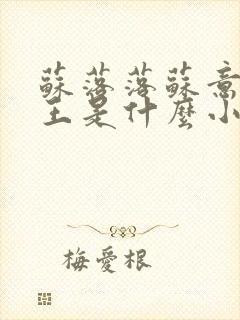 蘇落落蘇意
王是什麼小
梅愛根